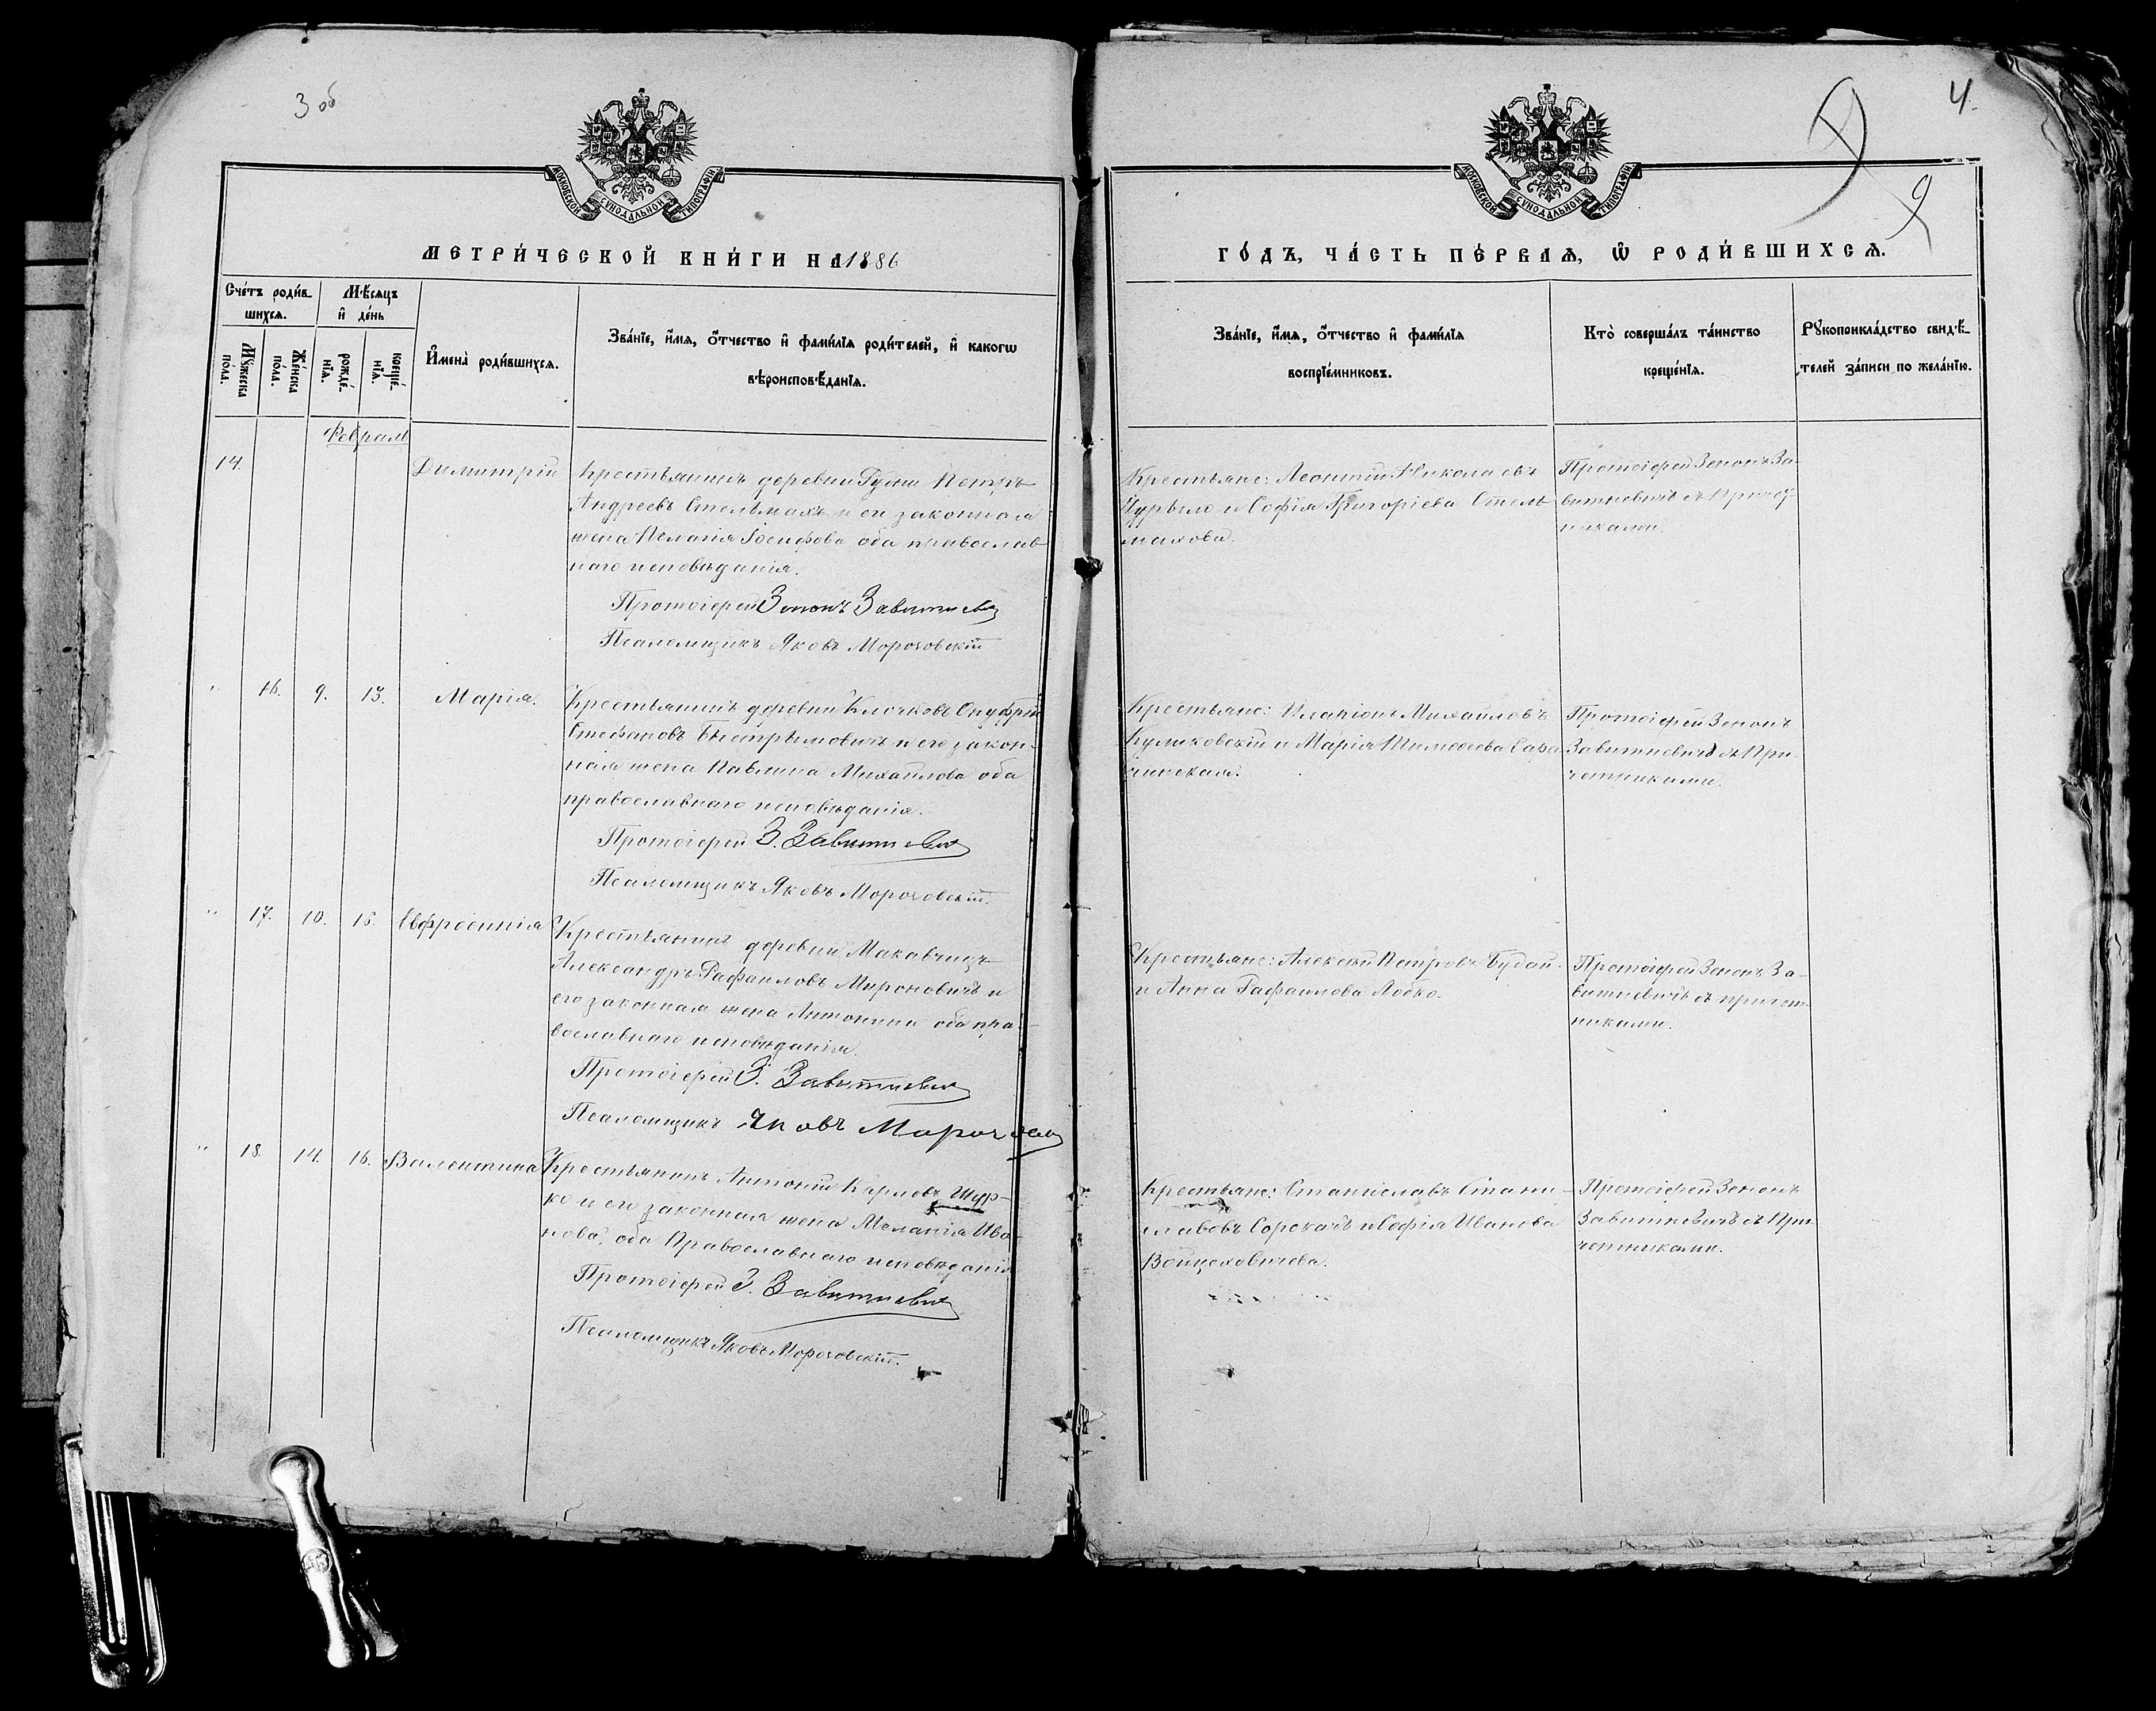 3 об
МОСКОВСКОЙ СѴНОДАЛЬНОЙ ТИПОГРАФІИ
МЕТРИ́ЧЕСКОЙ КНИ́ГИ НА 1886
Сче́тъ роди́вшихсѧ.
Мꙋ́жеска по́ла.
Же́нска по́ла.
Мѣ́сяцъ и҆ де́нь
рожде́нїѧ.
креще́нїѧ.
И҆мена̀ роди́вшихсѧ.
Зва́нїе, и҆́мѧ, ѻ҆́тчество и҆ фами́лїѧ роди́телей, и҆ какогѡ
вѣроисповѣ́данїѧ.
Февраль
14.
Димитрій
Крестьянинъ деревни Гузни Петръ
Андреевъ Стельмахъ и его законная
жена Пелагія Іосифова оба православ-
наго исповѣданія.
Протоіерей Зенонъ Завитневичъ
Псаломщикъ Яковъ Мороховскій
" 16. 9. 13. Марія.
Крестьянинъ деревни Клочковъ Онуфрій
Стефановъ Быстрымовичъ и его закон-
ная жена Павлина Михайлова оба
православнаго исповѣданія.
Протоіерей З. Завитневичъ
Псаломщикъ Яковъ Мороховскій.
" 17. 10. 15. Евфросинія
Крестьянинъ деревни Макавчицъ
Александръ Рафаиловъ Мироновичъ и
его законная жена Антонина оба пра-
вославнаго исповѣданія.
Протоіерей З. Завитневичъ
Псаломщикъ Яковъ Мороховскій
" 18. 14. 16. Валентина
Крестьянинъ Антоній Карловъ Шур-
ко и его законная жена Меланія Ива-
нова, оба Православнаго исповѣданія
Протоіерей З. Завитневичъ
Псаломщикъ Яковъ Мороховскій.
4.
9
МОСКОВСКОЙ СѴНОДАЛЬНОЙ ТИПОГРАФІИ
ГО́ДЪ, ЧА́СТЬ ПЕ́РВАѦ, Ѡ҆ РОДИ́ВШИХСѦ.
Зва́нїе, и҆́мѧ, ѻ҆́тчество и҆ фами́лїѧ
воспрїе́мниковъ.
Кто̀ соверша́лъ та́инство
креще́нїѧ.
Рꙋкоприкла́дство свидѣ́-
телей за́писи по жела́нїю.
Крестьяне: Леонтій Николаевъ
Цурыло и Софія Григоріева Стель-
махова.
Протоіерей Зенонъ За-
витневичъ съ причет-
никами.
Крестьяне: Иларіонъ Михайловъ
Куликовскій и Марія Тимоѳеева
чинская.
Протоіерей Зенонъ
Завитневичъ съ При-
четниками.
Крестьяне: Алексѣй Петровъ Будай
и Анна Рафаилова Лобко.
Протоіерей Зенонъ За-
витневичъ съ причет-
никами.
Крестьяне: Станиславъ Стани-
славовъ Сорокачъ и Софія Иванова
Войцеховичева.
Протоіерей Зенонъ
Завитневичъ съ При-
четниками.